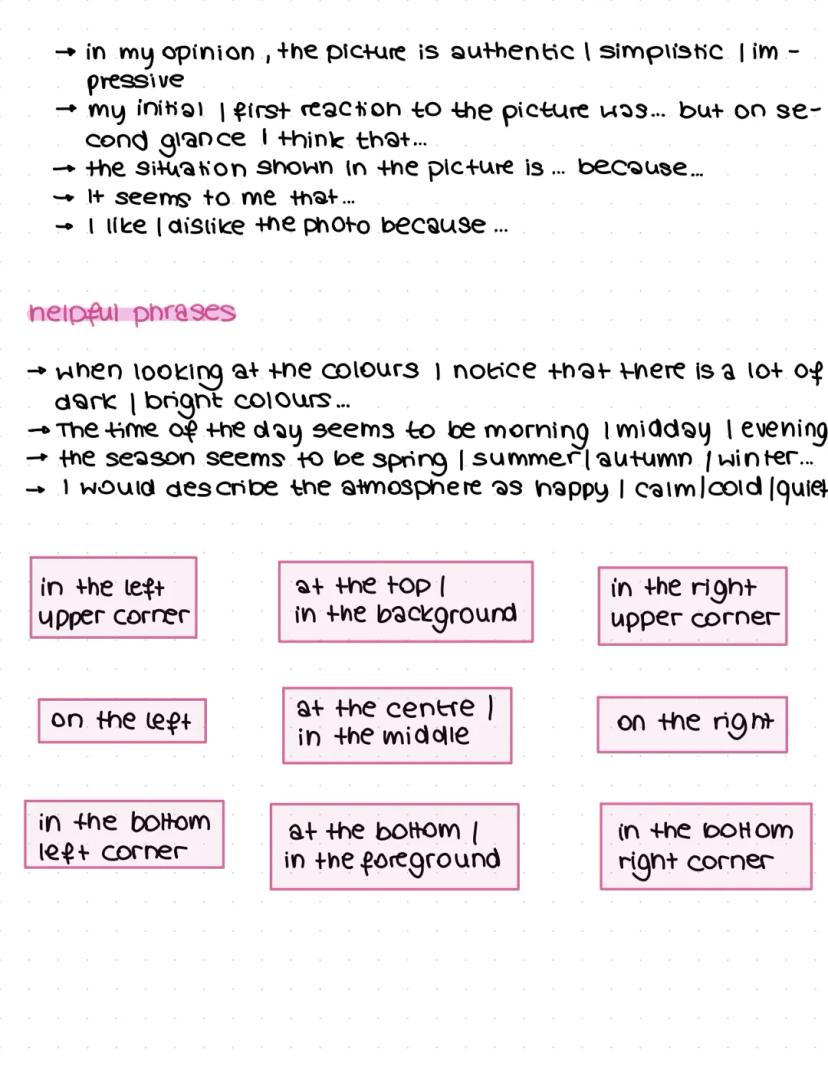 → in my opinion, the picture is authentic | simplistic | im-
pressive
→ my initial | first reaction to the picture was... but on se-
cond glance I think that...
→ the situation shown in the picture is ... because...
→ It seems to me that...
→ I like | dislike the photo because ...
helpful phrases
→ when looking at the colours I notice that there is a lot of
dark | bright colours...
→ The time of the day seems to be morning | midday | evening
→ the season seems to be spring | summer | autumn | winter...
→ I would describe the atmosphere as happy | calm | cold | quiet
in the left
upper corner
at the top |
in the background
in the right
upper corner
on the left
at the centre |
in the middle
on the right
in the bottom
left corner
at the bottom |
in the foreground
in the bottom
right corner